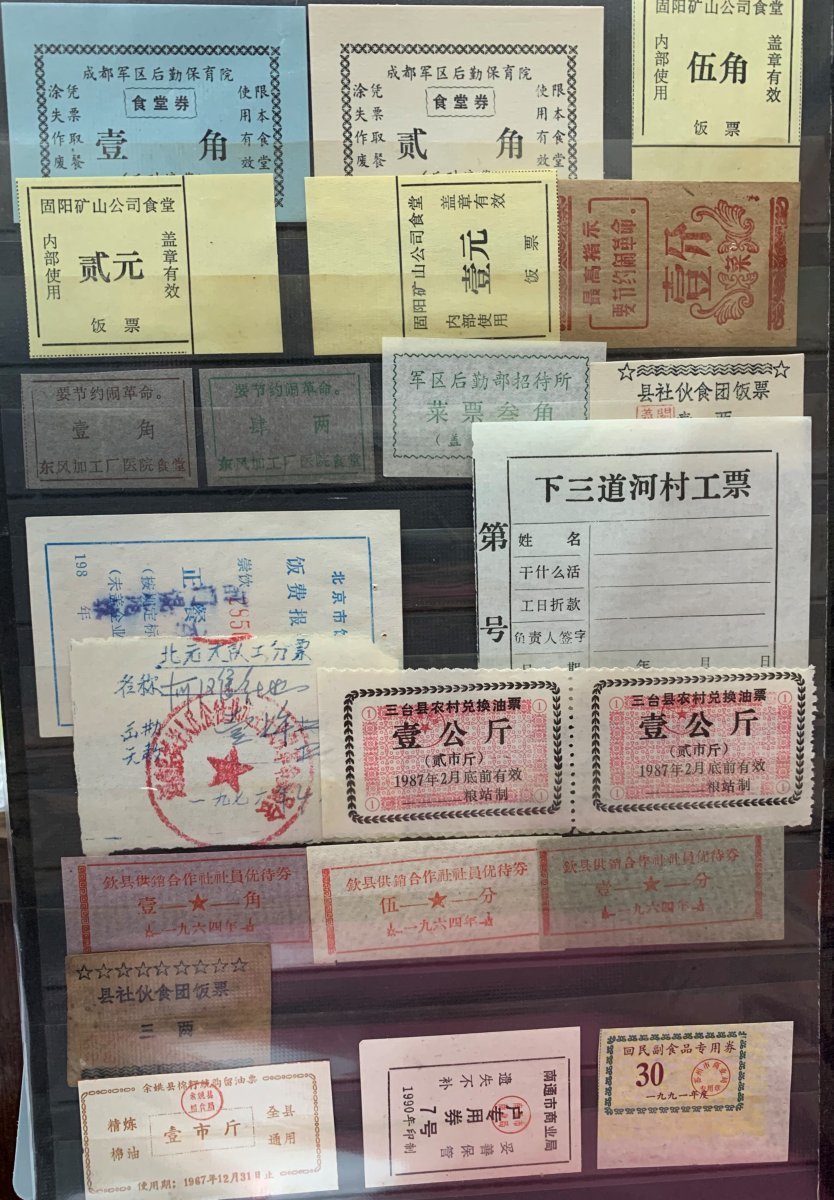 成都军区后勤保育院
食堂券
壹 角
凭票取餐
涂失作废
限本食堂
使用有效
成都军区后勤保育院
食堂券
贰 角
凭票取餐
涂失作废
限本食堂
使用有效
固阳矿山公司食堂
内部使用
伍角
盖章有效
饭票
固阳矿山公司食堂
内部使用
贰元
盖章有效
饭票
固阳矿山公司食堂
内部使用
壹元
盖章有效
饭票
最高指示
要节约闹革命。
壹分
菜
要节约闹革命。
壹 角
东风加工厂医院食堂
要节约闹革命。
肆 两
东风加工厂医院食堂
军区后勤部招待所
菜票叁角
(盖
县社伙食团饭票
下三道河村工票
第 号
姓 名
干什么活
工日折款
负责人签字
日 期 年 月 日
北京市
饭费报
崇饮
正餐
198 年
北元大队工分票
名称
一九七
三台县农村兑换油票
壹公斤
(贰市斤)
1987年2月底前有效
粮站制
三台县农村兑换油票
壹公斤
(贰市斤)
1987年2月底前有效
粮站制
钦县供销合作社社员优待券
壹—★—角
一九六四年
钦县供销合作社社员优待券
伍—★—分
一九六四年
钦县供销合作社社员优待券
壹—★—分
一九六四年
☆☆☆☆☆☆☆☆☆
县社伙食团饭票
三 两
余姚县棉籽预购留油票
余姚县
粮食局
精炼
棉油
壹市斤
全县
通用
使用期:1967年12月31日止
南通市商业局
户专用券
7号
妥善保管
遗失不补
1990年印制
回民副食品专用券
30
一九九一年度